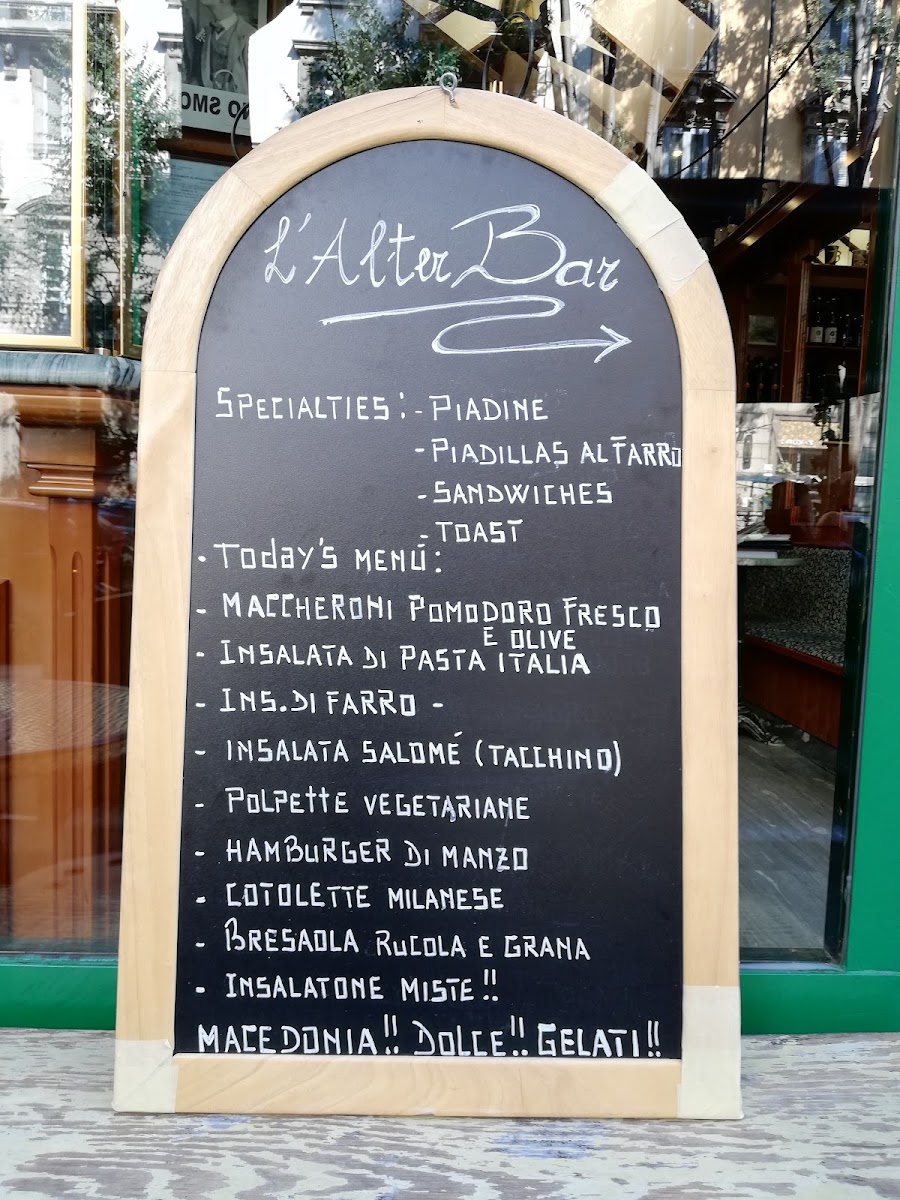 NO SMO
L'Alter Bar
SPECIALTIES: - PIADINE
- PIADILLAS AL FARRO
- SANDWICHES
- TOAST
· TODAY'S MENÚ:
- MACCHERONI POMODORO FRESCO
E OLIVE
- INSALATA DI PASTA ITALIA
- INS. DI FARRO -
- INSALATA SALOMÉ (TACCHINO)
- POLPETTE VEGETARIANE
- HAMBURGER DI MANZO
- COTOLETTE MILANESE
- BRESAOLA RUCOLA E GRANA
- INSALATONE MISTE!!
MACEDONIA!! DOLCE!! GELATI!!